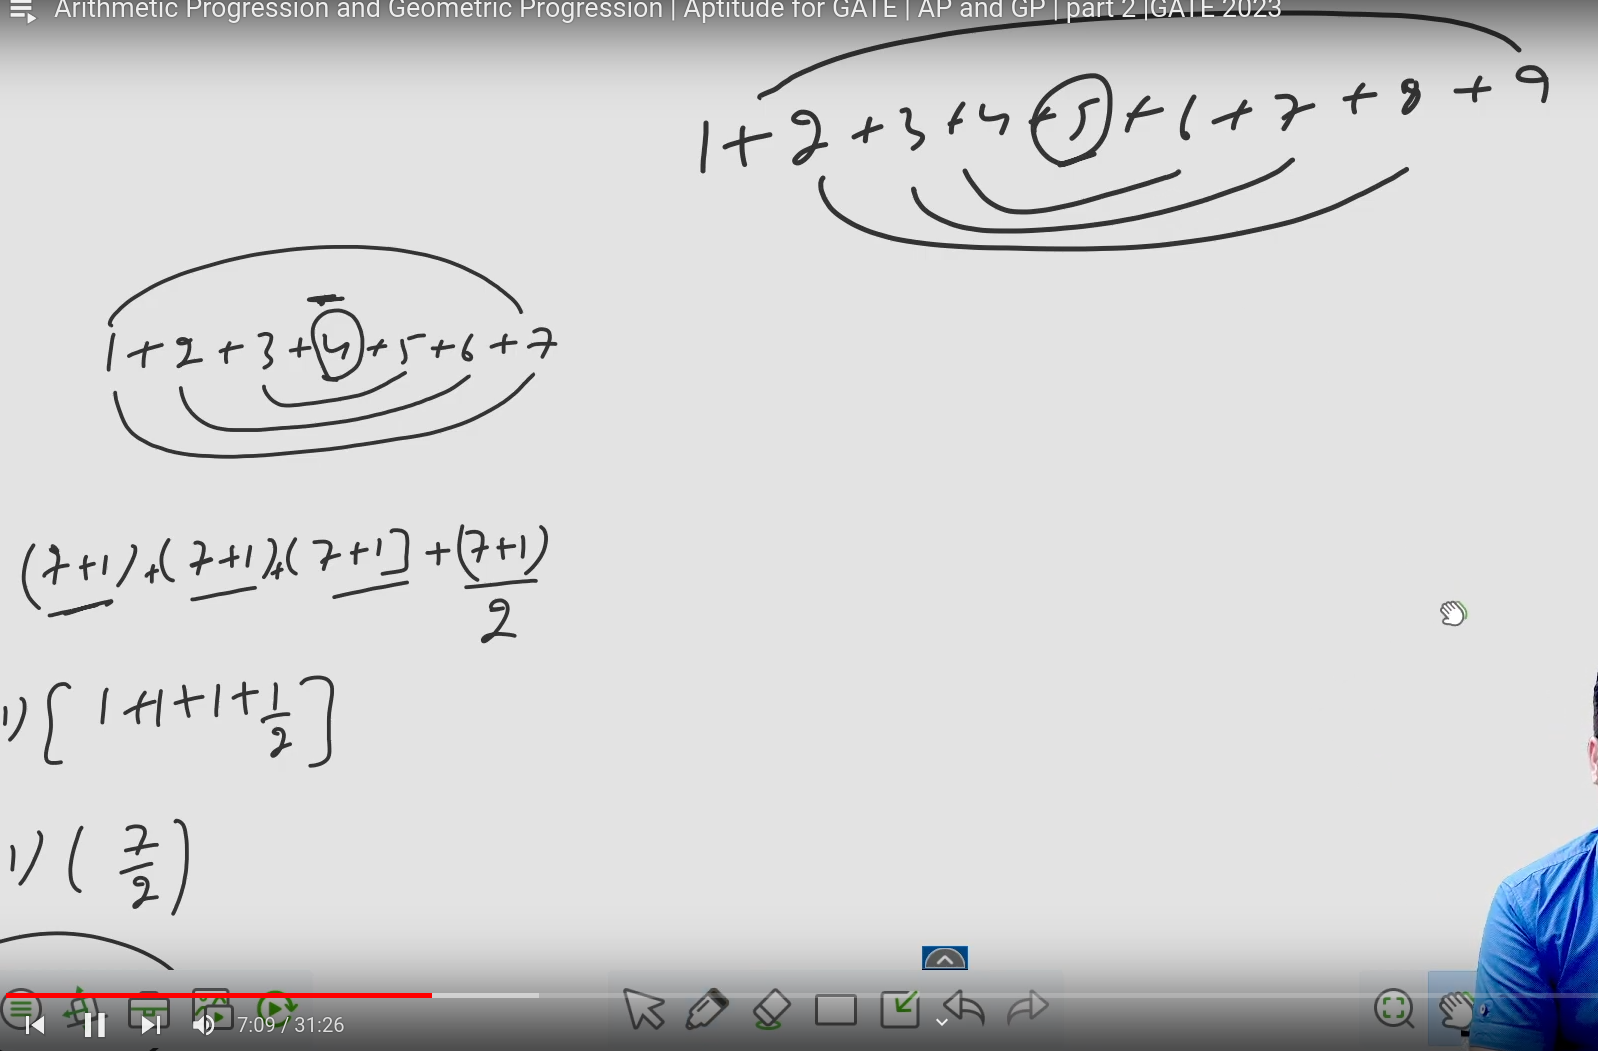 Arithmetic Progression and Geometric Progression | Aptitude for GATE | AP and GP | part 2 |GATE 2023
1+2+3+4+5+6+7+8+9
1+2+3+4+5+6+7
(7+1)+(7+1)+(7+1]+(7+1)/2
1)[1+1+1+1/2]
1)(7/2)
7:09 / 31:26